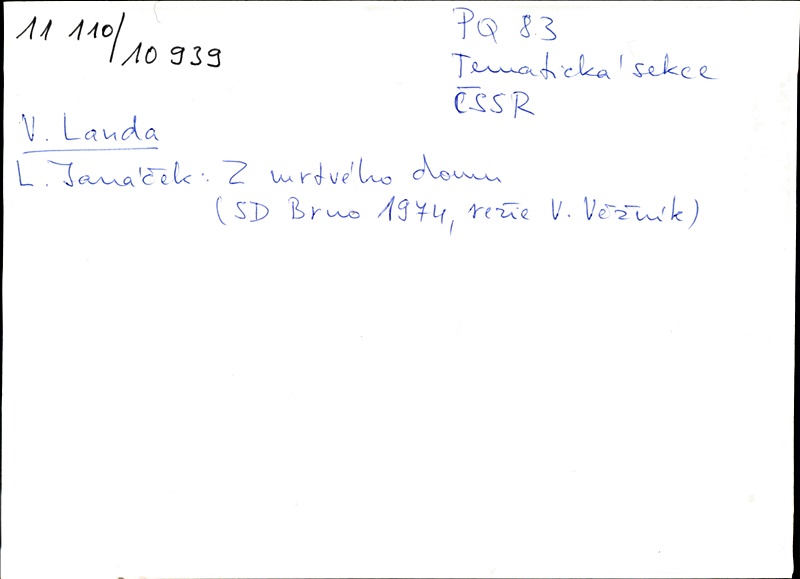 11 110/10 939
PQ 83
Tematická sekce
ČSSR
V. Landa
L. Janáček: Z mrtvého domu
(SD Brno 1974, režie V. Věžník)